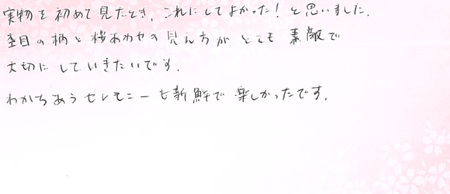 実物を初めて見たとき、これにしてよかった！と思いました。
杢目の柄と桜あわせの見え方がとても素敵で
大切にしていきたいです。
わかちあうセレモニーも新鮮で楽しかったです。